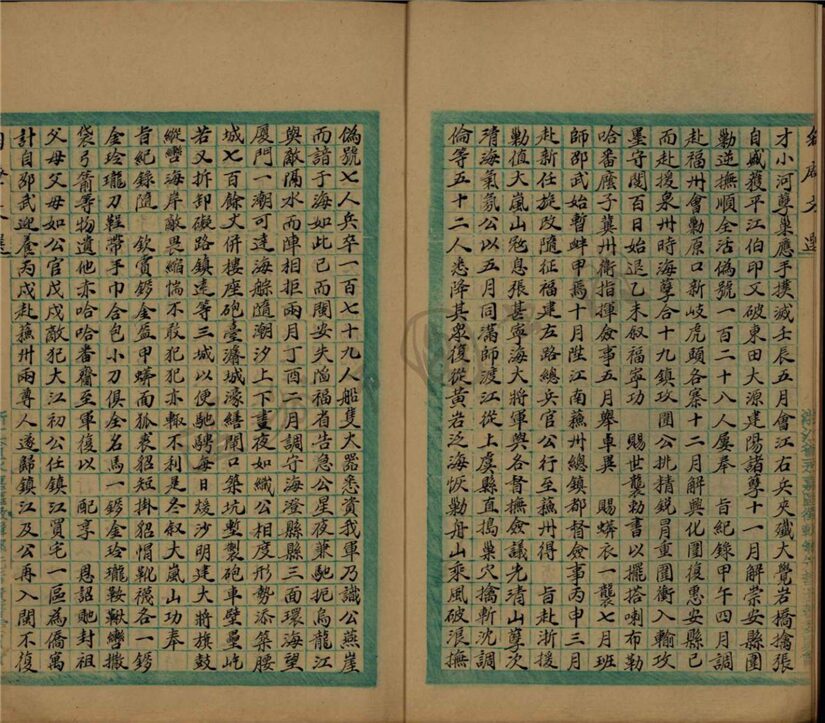 才小河孽巢應手撲滅壬辰五月會江右兵夾殲大覺岩橋擒張
自盛獲平江伯印又破東田大源建陽諸孽十一月解崇安縣圍
勦逆撫順全活偽號一百二十八人屢奉　旨紀錄甲午四月調
赴福州會勦原口新岐虎頭各寨十二月解興化圍復惠安縣已
而赴援泉州時海孽合十九鎮攻圍公挑精銳冒重圍衝入輸攻
墨守閱百日始退乙未叙福寧功　賜世襲勅書以擺搭喇布勒
哈番廕子冀州衛指揮僉事五月舉卓異　賜蟒衣一襲七月班
師邵武始暫蚌甲焉十月陞江南蘓州總鎮都督僉事丙申三月
赴新任旋改隨征福建左路總兵官公行至蘓州得　旨赴浙援
勦值大嵐山冦息張甚寧海大將軍與各督撫僉議先清山孽次
靖海氣氛公以五月同滿師渡江從上虞縣直搗巢穴擒斬沈調
倫等五十二人悉降其衆復從黃岩泛海恢勦舟山乘風破浪撫
偽號七人兵卒一百七十九人船隻大器悉資我軍乃識公燕崖
而諳于海如此已而閩安失陷福省告急公星夜兼馳扼烏龍江
與敵隔水而陣相拒兩月丁酉二月調守海澄縣縣三面環海望
厦門一潮可達海艅隨潮汐上下晝夜如織公相度形勢添築腰
城七百餘丈併樓座砲臺濬城濠繕閘口築坑塹製砲車壁壘屹
若又拆卸礙路鎮遠等三城以便馳騁每日煖沙明建大將旗鼓
縱轡海岸敵畏縮惴不敢犯犯亦輒不利是冬叙大嵐山功奉
旨紀錄隨　欽賞鍍金盔甲蟒面狐裘貂短掛貂帽靴襪各一鍍
金玲瓏刀鞓帶手巾合包小刀俱全名馬一鍍金玲瓏鞍鞦轡撒
袋弓箭等物遺他亦哈哈番齎至軍復以　配享　恩詔馳封祖
父母父母如公官戊戌敵犯大江初公任鎮江買宅一區為僑寓
計自邵武迎養丙戌赴蘓州兩尊人遂歸鎮江及公再入閩不復